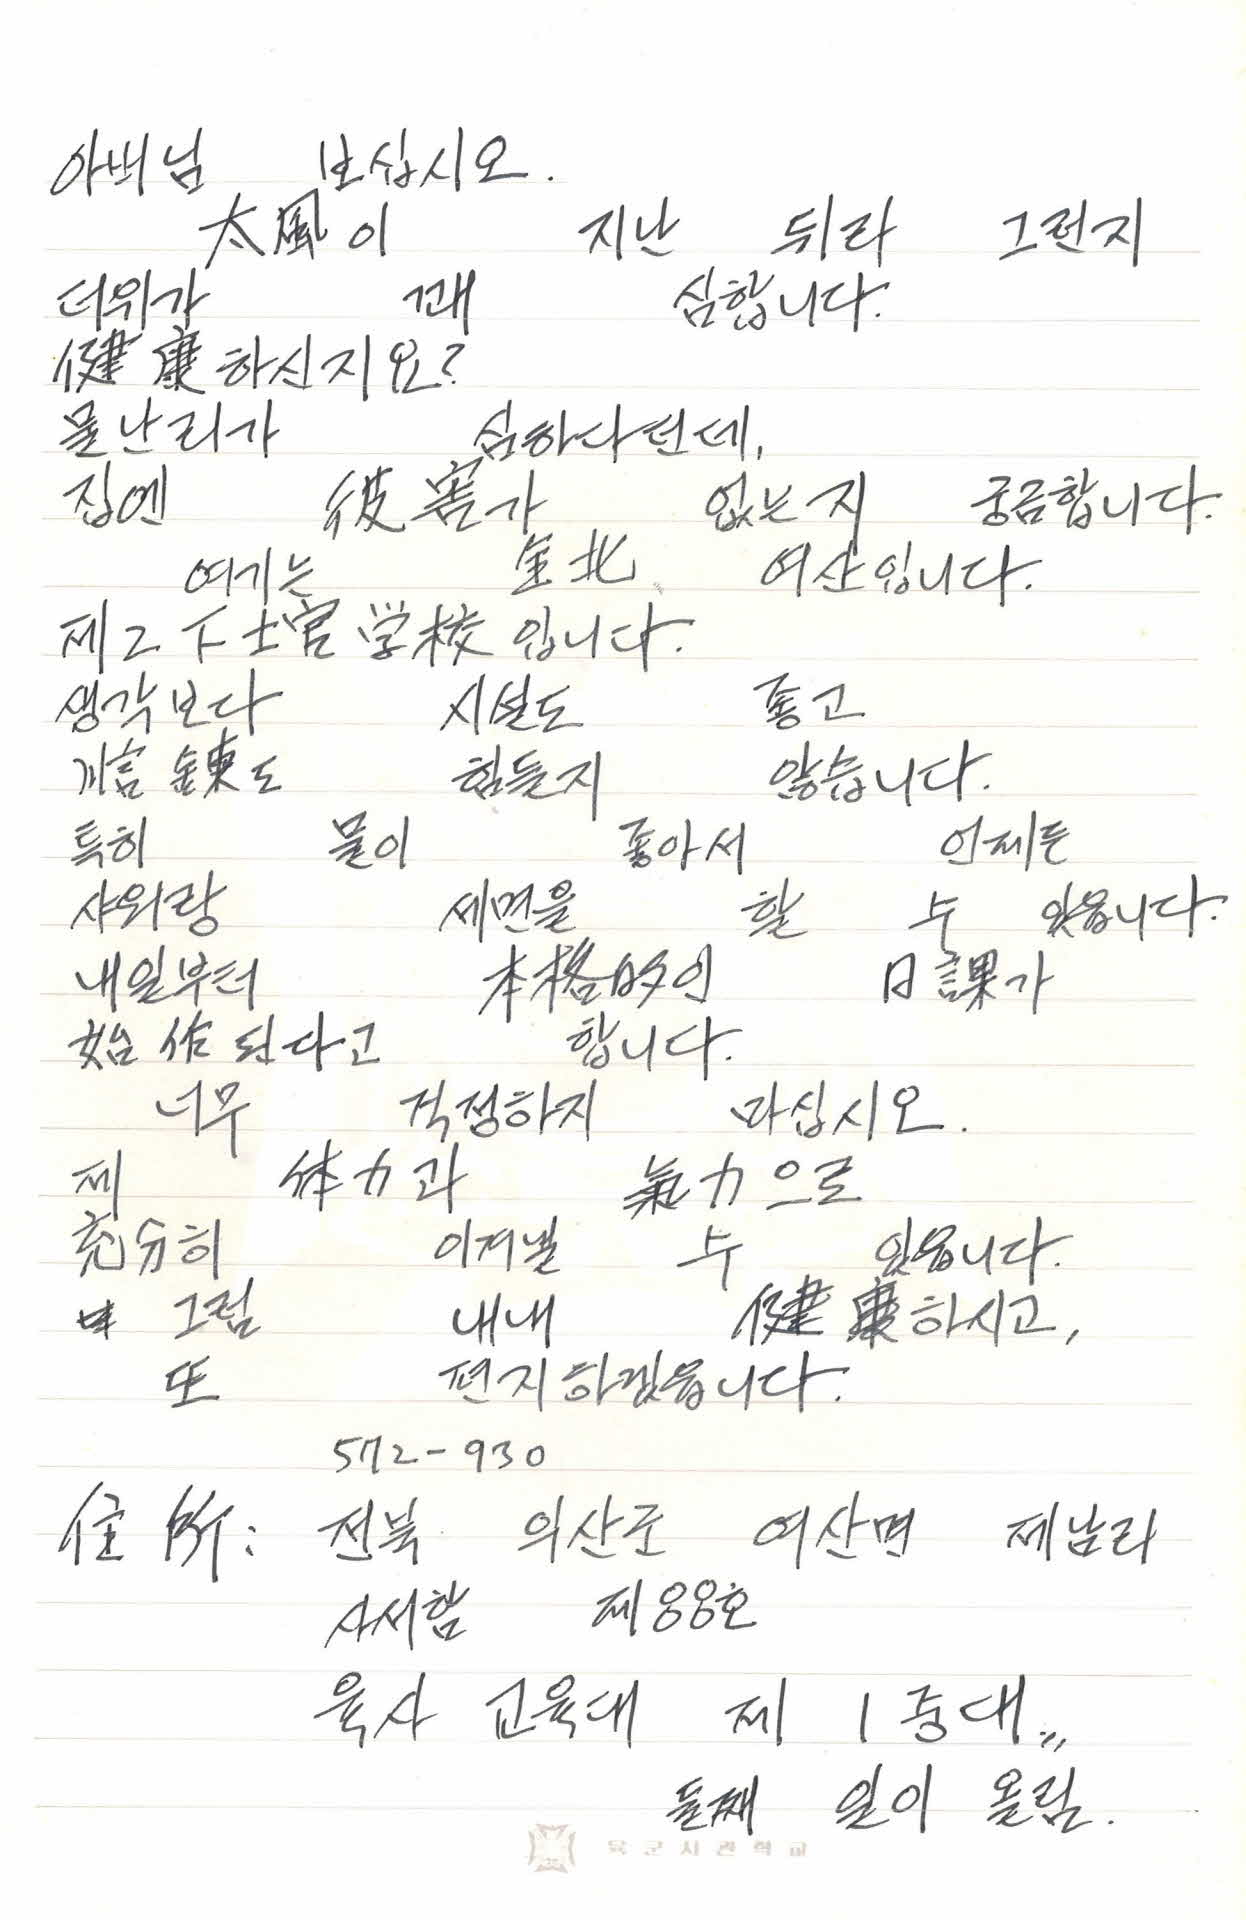 아버님 보십시오.
太風이 지난 뒤라 그런지
더위가 꽤 심합니다.
健康하신지요?
물난리가 심하다던데,
집엔 彼害가 없는지 궁금합니다.
여기는 全北 여산입니다.
제2 下士官学校입니다.
생각보다 시설도 좋고
訓鍊도 힘들지 않습니다.
특히 물이 좋아서 언제든
샤워랑 세면을 할 수 있읍니다.
내일부터 本格的인 日課가
始作된다고 합니다.
너무 걱정하지 마십시오.
제 体力과 氣力으로
充分히 이겨낼 수 있읍니다.
그럼 내내 健康하시고,
또 편지하겠읍니다.
572-930
住所: 전북 익산군 여산면 제남리
사서함 제88호
육사 교육대 제 1중대.,,
둘째 일이 올림.
육군사관학교